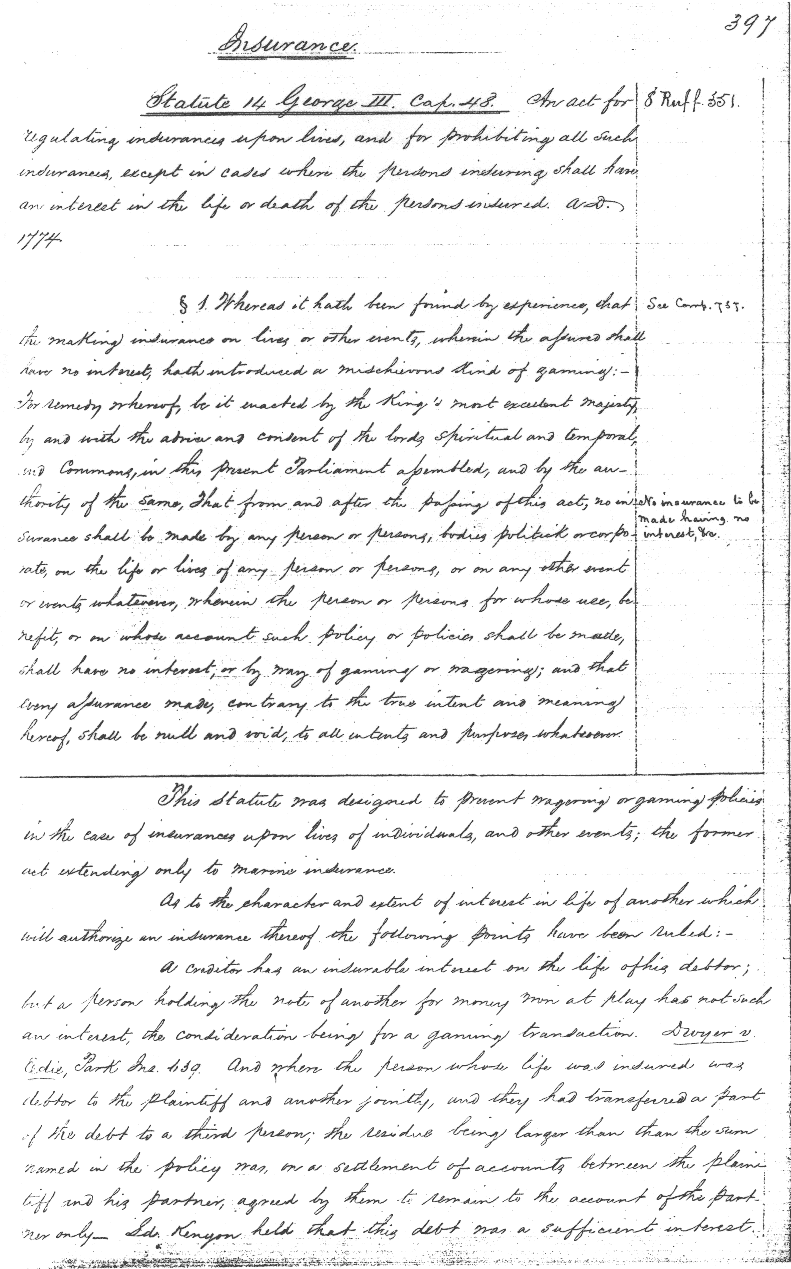 397
Insurance.
Statute 14 George III. Cap. 48. An act for
8 Ruff. 551.
regulating insurances upon lives, and for prohibiting all such
insurances, except in cases where the persons insuring shall have
an interest in the life or death of the persons insured. A.D.
1774.
§ 1. Whereas it hath been found by experience, that
See Comb.
the making insurance on lives or other events, wherein the assured shall
have no interest, hath introduced a mischievous kind of gaming:-
For remedy whereof, be it enacted by the King's most excellent majesty,
by and with the advice and consent of the lords spiritual and temporal,
and Commons, in this present Parliament assembled, and by the au-
thority of the same, That from and after the passing of this act, no in
No insurance to be
surance shall be made by any person or persons, bodies politick or corpo-
made having no
interest, &c.
rate, on the life or lives of any person or persons, or on any other event
or events whatever, wherein the person or persons for whose use, be
nefit, or on whose account such policy or policies shall be made,
shall have no interest, or by way of gaming or wagering; and that
every assurance made, contrary to the true intent and meaning
hereof, shall be null and void, to all intents and purposes whatsoever.
This Statute was designed to prevent wagering or gaming policies
in the case of insurances upon lives of individuals, and other events; the former
act extending only to marine insurance.
As to the character and extent of interest in life of another which
will authorize an insurance thereof the following points have been ruled:-
A creditor has an insurable interest on the life of his debtor;
but a person holding the note of another for money won at play has not such
an interest, the consideration being for a gaming transaction. Dwyer v.
Edie, Park Ins. 639. And where the person whose life was insured was
debtor to the plaintiff and another jointly, and they had transferred a part
of the debt to a third person; the residue being larger than than the sum
named in the policy was, on a settlement of accounts between the plain
tiff and his partner, agreed by them to remain to the account of the part
ner only- Ld. Kenyon held that this debt was a sufficient interest.